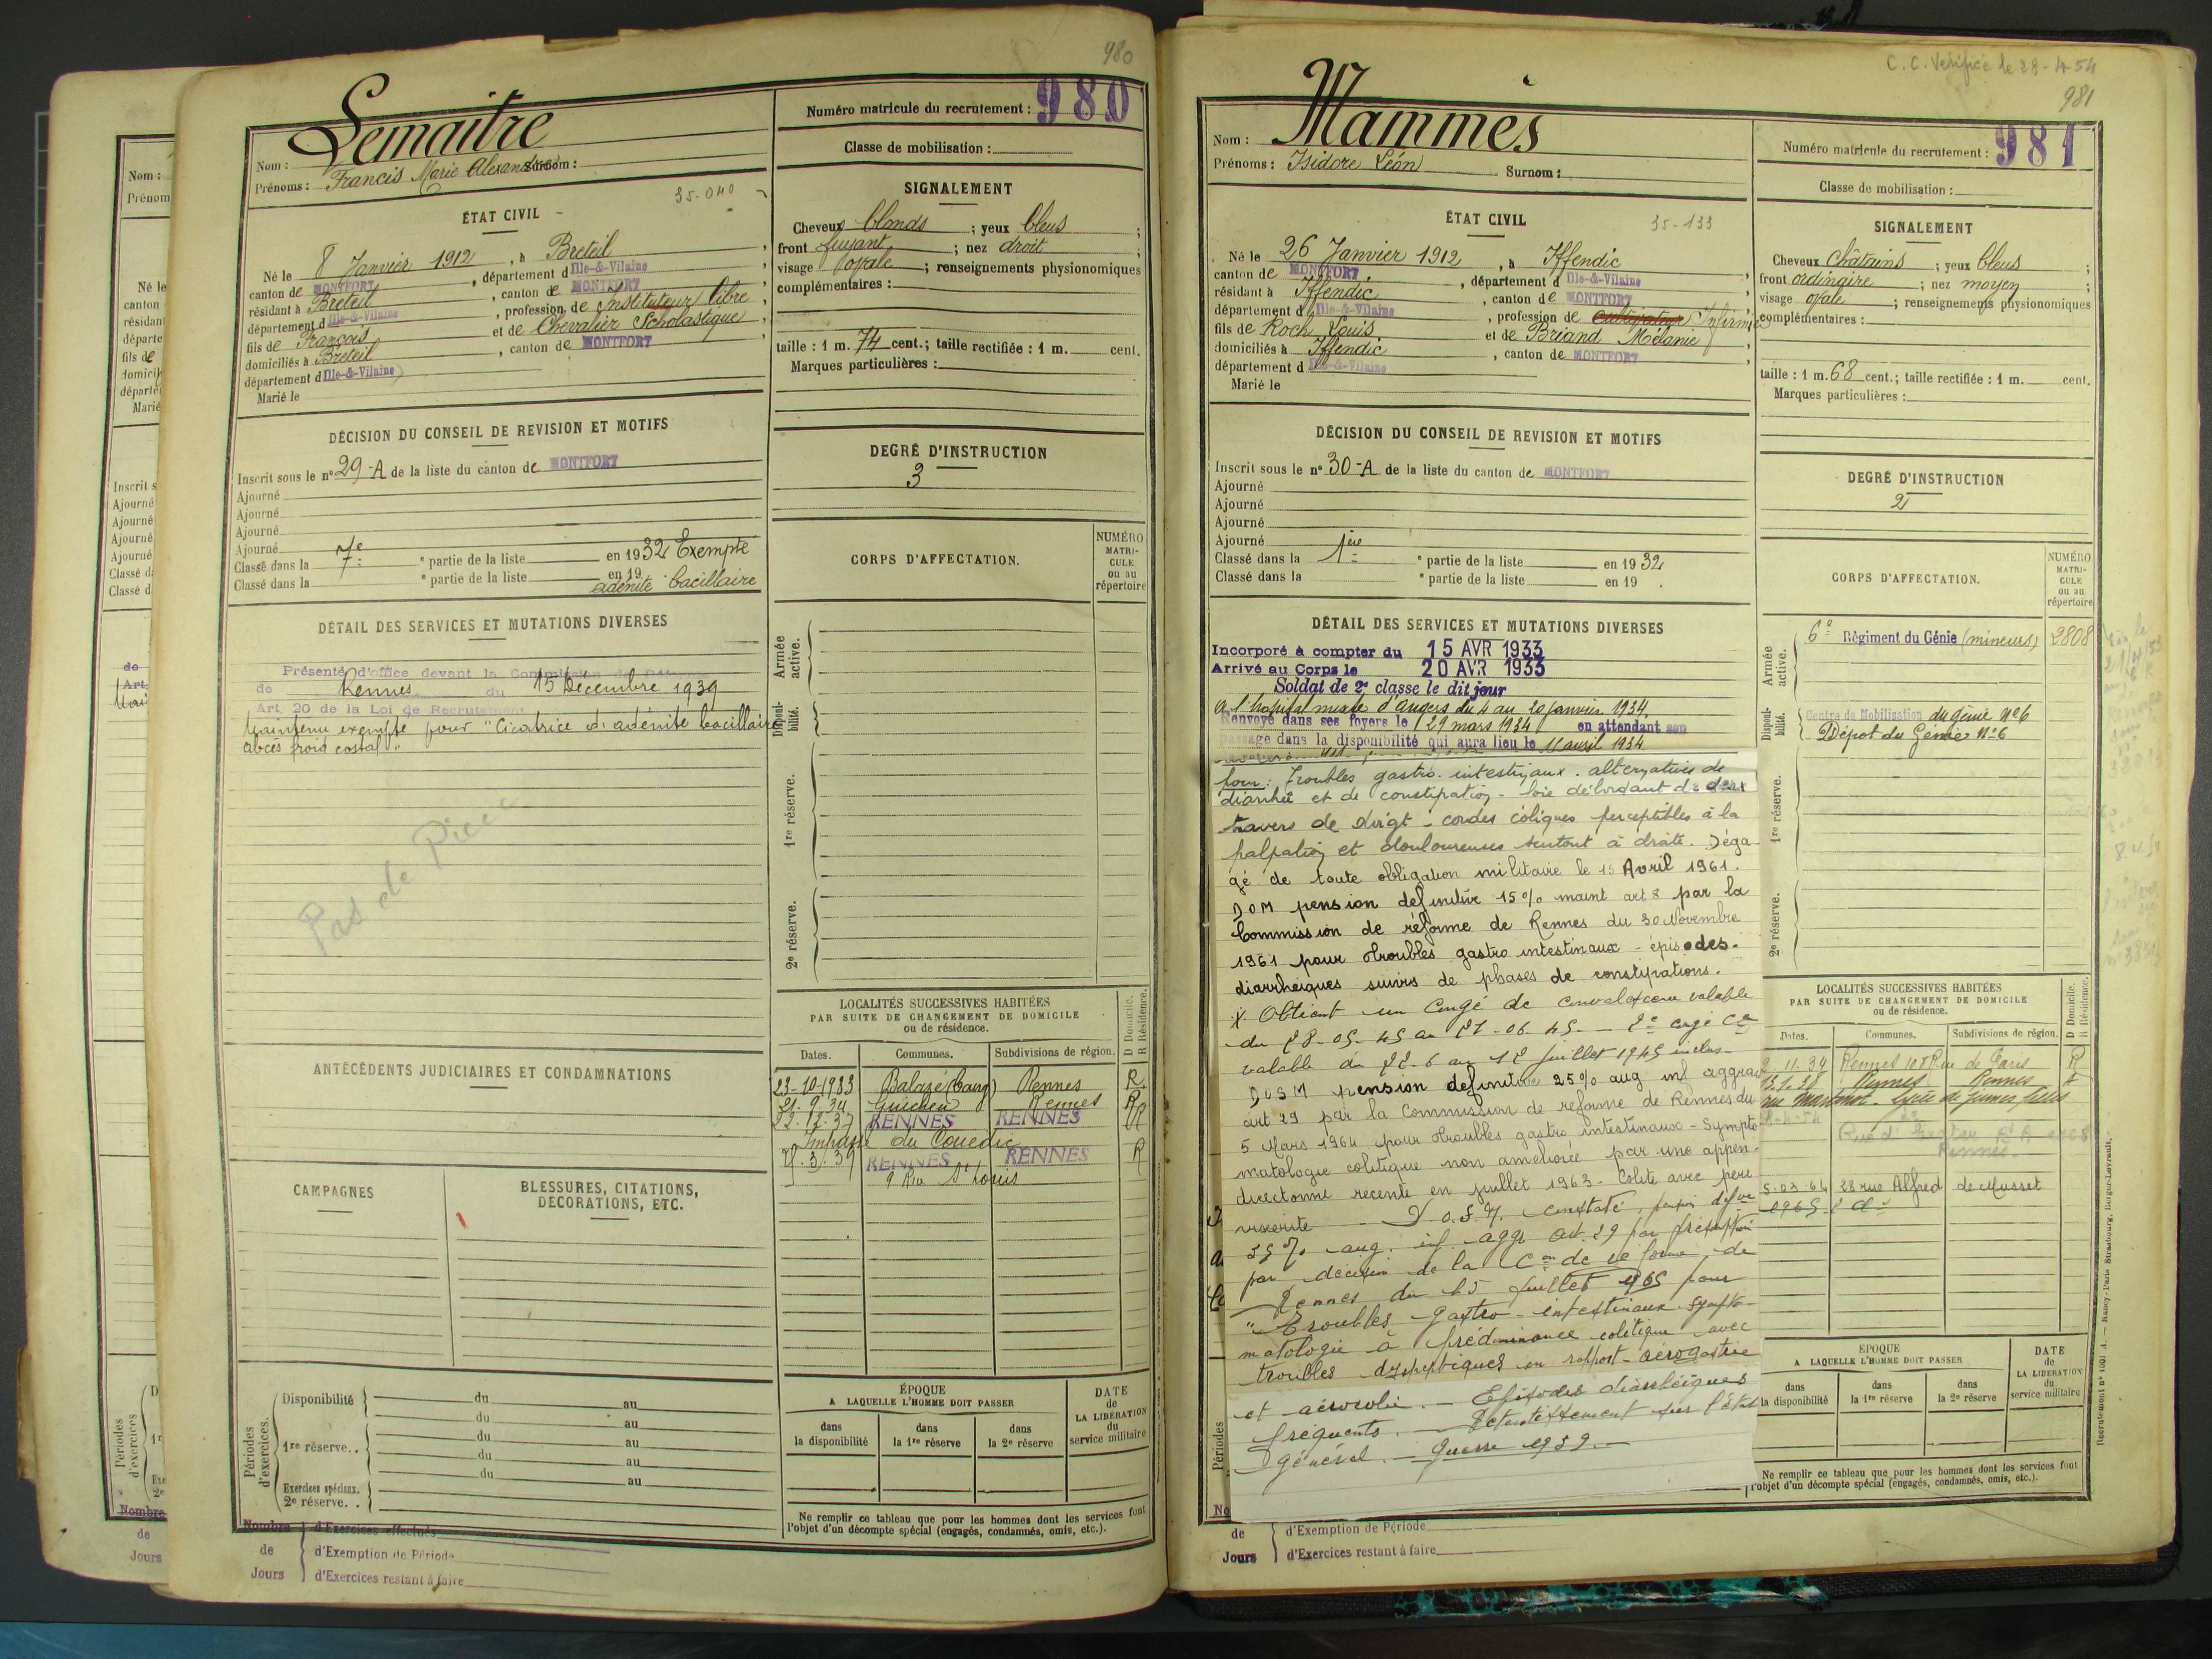 980
Lemaitre
Nom :
Surnom :
Prénoms : Francis Marie Alexandre
Numéro matricule du recrutement : 980
Classe de mobilisation :
35-040
ÉTAT CIVIL
Né le 8 Janvier 1912, à Breteil
canton de MONTFORT, département d Ille-&-Vilaine
résidant à Breteil, canton de MONTFORT
département d Ille-&-Vilaine, profession de Instituteur libre
fils de François et de Chevalier Scholastique
domiciliés à Breteil, canton de MONTFORT
département d Ille-&-Vilaine
Marié le
SIGNALEMENT
Cheveux blonds ; yeux bleus ;
front fuyant ; nez droit ;
visage ovale ; renseignements physionomiques
complémentaires :
taille : 1 m. 74 cent.; taille rectifiée : 1 m. cent.
Marques particulières :
DÉCISION DU CONSEIL DE REVISION ET MOTIFS
Inscrit sous le n° 29-A de la liste du canton de MONTFORT
Ajourné
Ajourné
Ajourné
Ajourné
Classé dans la 7e ° partie de la liste en 1932 Exempté
Classé dans la ° partie de la liste en 19
adénite bacillaire
DEGRÉ D'INSTRUCTION
3
CORPS D'AFFECTATION.
NUMÉRO MATRI-CULE ou au répertoire
DÉTAIL DES SERVICES ET MUTATIONS DIVERSES
Présenté d'office devant la Commission de
de Rennes du 15 Décembre 1939
Art. 20 de la Loi de Recrutement
Maintenu exempté pour "Cicatrice d'adénite bacillaire
abcès froid costal"
Pas de Pièce
Armée active.
Disponi-bilité.
1re réserve.
2e réserve.
LOCALITÉS SUCCESSIVES HABITÉES
PAR SUITE DE CHANGEMENT DE DOMICILE
ou de résidence.
D Domicile.
R Résidence.
Dates. Communes. Subdivisions de région.
23-10-1933 Balazé (bourg) Rennes R.
21.9.34 Guichen Rennes R
22.12.37 RENNES RENNES R
Impasse du Couedic
RENNES RENNES R
9 Rue St Louis
ANTÉCÉDENTS JUDICIAIRES ET CONDAMNATIONS
CAMPAGNES
BLESSURES, CITATIONS,
DÉCORATIONS, ETC.
Périodes d'exercices.
Disponibilité du au
du au
1re réserve.. du au
du au
Exercices spéciaux.
2e réserve. . du au
Nombre d'Exercices effectués
de d'Exemption de Période
Jours d'Exercices restant à faire
ÉPOQUE
A LAQUELLE L'HOMME DOIT PASSER
dans la disponibilité
dans la 1re réserve
dans la 2e réserve
DATE de LA LIBÉRATION du service militaire
Ne remplir ce tableau que pour les hommes dont les services font
l'objet d'un décompte spécial (engagés, condamnés, omis, etc.).
C. C. Vérifiée le 28-4-54
981
Nom : Mammès
Prénoms : Isidore Léon Surnom :
Numéro matricule du recrutement : 981
Classe de mobilisation :
ÉTAT CIVIL
35-133
Né le 26 Janvier 1912, à Iffendic
canton de MONTFORT, département d Ille-&-Vilaine
résidant à Iffendic, canton de MONTFORT
département d Ille-&-Vilaine, profession de cultivateur Infirmier
fils de Roch Louis et de Briand Mélanie
domiciliés à Iffendic, canton de MONTFORT
département d Ille-&-Vilaine
Marié le
SIGNALEMENT
Cheveux châtains ; yeux bleus ;
front ordinaire ; nez moyen ;
visage ovale ; renseignements physionomiques
complémentaires :
taille : 1 m. 68 cent.; taille rectifiée : 1 m. cent.
Marques particulières :
DÉCISION DU CONSEIL DE REVISION ET MOTIFS
Inscrit sous le n° 30-A de la liste du canton de MONTFORT
Ajourné
Ajourné
Ajourné
Ajourné
Classé dans la 1ère ° partie de la liste en 1932
Classé dans la ° partie de la liste en 19 .
DEGRÉ D'INSTRUCTION
2
CORPS D'AFFECTATION.
NUMÉRO MATRI-CULE ou au répertoire
6e Régiment du Génie (mineurs) 2808
Centre de Mobilisation du génie N°6
Dépot du Génie N°6
Armée active.
Disponi-bilité.
1re réserve.
2e réserve.
DÉTAIL DES SERVICES ET MUTATIONS DIVERSES
Incorporé à compter du 15 AVR 1933
Arrivé au Corps le 20 AVR 1933
Soldat de 2e classe le dit jour
A l'hopital mixte d'Angers du 4 au 20 janvier 1934.
Renvoyé dans ses foyers le 29 mars 1934 en attendant son
passage dans la disponibilité qui aura lieu le 15 avril 1934
pour : Troubles gastro-intestinaux. alternatives de
diarrhée et de constipation - foie débordant de deux
travers de doigt - cordes coliques perceptibles à la
palpation et douloureuses surtout à droite. Déga-
gé de toute obligation militaire le 15 Avril 1961.
DOM pension définitive 15% maint art 8 par la
Commission de réforme de Rennes du 30 Novembre
1961 pour troubles gastro intestinaux - épisodes.
diarrheiques suivis de phases de constipations.
X Obtient un Congé de convalescence valable
du 28-05-45 au 21-06-45 — 2e congé Cce
valable du 22-6 au 12 juillet 1945 inclus-
DOSM pension définitive 25% aug inf aggrav
art 29 par la Commission de reforme de Rennes du
5 Mars 1964 pour troubles gastro intestinaux - Sympto-
matologie colitique non améliorée par une appen-
dicectomie recente en juillet 1963 - Colite avec peri
viscerite - D.O.S.M. constaté, pension defve
35% aug. inf aggr art. 29 par présomption
par décision de la Con de réforme de
Rennes du 15 juillet 1965 pour
"Troubles Gastro-intestinaux sympto-
matologie à prédominance colitique avec
troubles dyspeptiques en rapport - aérogastrie
et aérocolie. - Episodes diarrhéiques
fréquents. - Retentissement sur l'état
général. - Guerre 1939. -
LOCALITÉS SUCCESSIVES HABITÉES
PAR SUITE DE CHANGEMENT DE DOMICILE
ou de résidence.
D Domicile.
R Résidence.
Dates. Communes. Subdivisions de région.
11.34 Rennes 108 Rue de Paris R
Rennes Rennes
rue Martenot - Lycée de jeunes filles
Rennes
5-03-64 28 rue Alfred de Musset
1965 do
ÉPOQUE
A LAQUELLE L'HOMME DOIT PASSER
dans la disponibilité
dans la 1re réserve
dans la 2e réserve
DATE de LA LIBÉRATION du service militaire
Ne remplir ce tableau que pour les hommes dont les services font
l'objet d'un décompte spécial (engagés, condamnés, omis, etc.).
Périodes
de d'Exemption de Période
Jours d'Exercices restant à faire
Recrutement n° 1001 A. — Nancy-Paris-Strasbourg, Berger-Levrault.